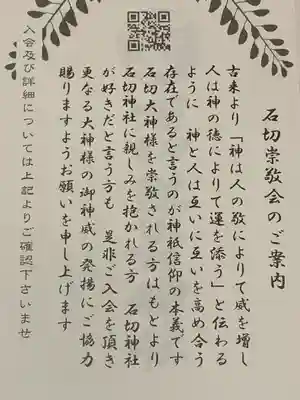 石切崇敬会のご案内
古来より「神は人の敬によりて威を増し
人は神の徳によりて運を添う」と伝わる
ように　神と人は互いに互いを高め合う
存在であると言うのが神祇信仰の本義です
石切大神様を崇敬される方はもとより
石切神社に親しみを抱かれる方　石切神社
が好きだと言う方も　是非ご入会を頂き
更なる大神様の御神威の発揚にご協力
賜りますようお願いを申し上げます
入会及び詳細については上記よりご確認下さいませ